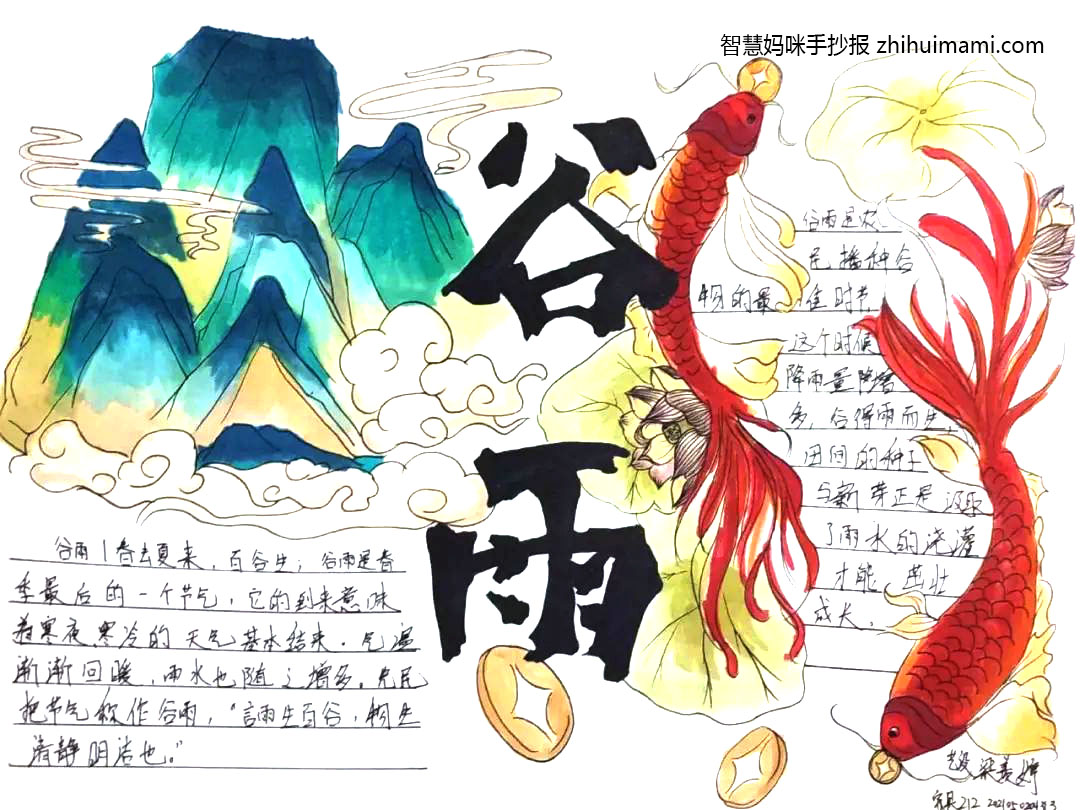 智慧妈咪手抄报 zhihuimami.com
谷雨
谷雨是农
民播种谷
物的最佳时节
这个时候
降雨量陡增
多，谷得雨而生，
田间的种子
与新芽正是汲取
了雨水的浇灌
才能茁壮
成长。
谷雨丨春去夏来，百谷生；谷雨是春
季最后的一个节气，它的到来意味
着寒夜寒冷的天气基本结束．气温
渐渐回暖，雨水也随之增多。
把节气称作谷雨，“言雨生百谷，物生
清静明洁也。”
212